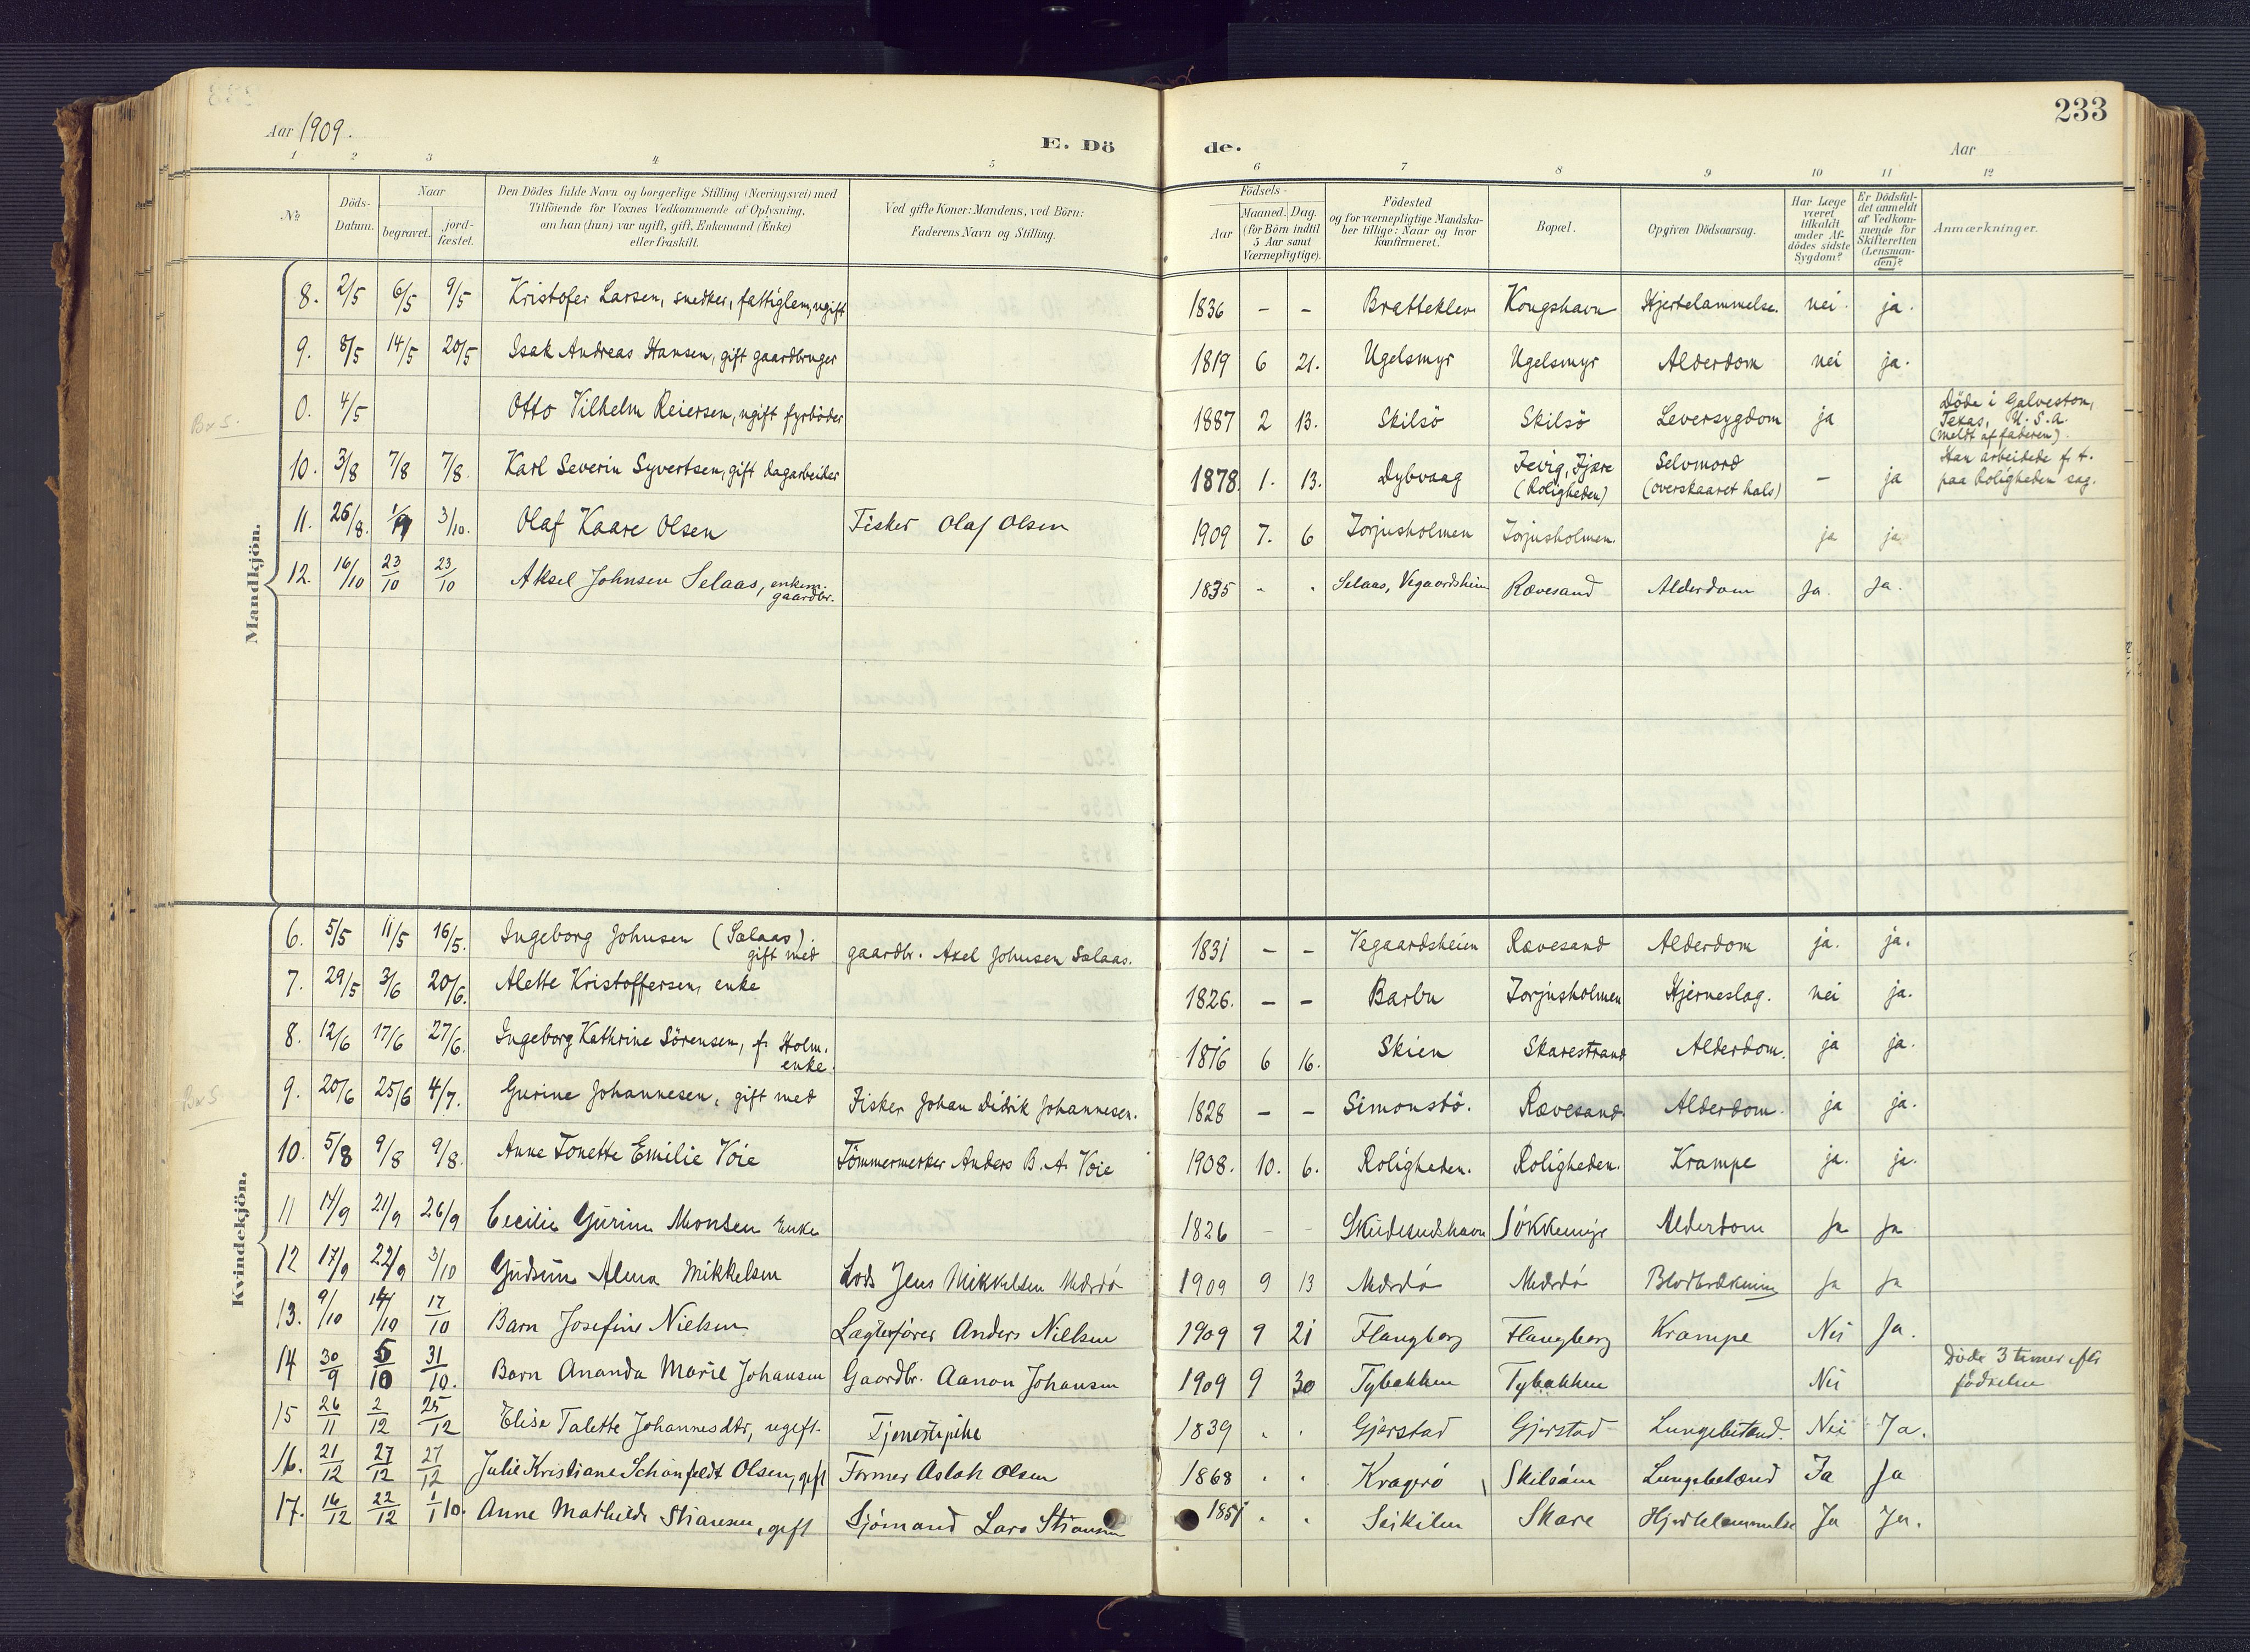 233
Aar 1909.
E. Dö
de.
Aar
1 2 3 4 5 6 7 8 9 10 11 12
№
Döds-
Datum.
Naar
begravet.
jord-
fæstet.
Den Dödes fulde Navn og borgerlige Stilling (Næringsvei) med
Tilföiende for Voxnes Vedkommende af Oplysning,
om han (hun) var ugift, gift, Enkemand (Enke)
eller fraskilt.
Ved gifte Koner: Mandens, ved Börn:
Faderens Navn og Stilling.
Födsels-
Aar
Maaned. Dag.
(for Börn indtil
5 Aar samt
Værnepligtige).
Födested
og for værnepligtige Mandska-
ber tillige: Naar og hvor
konfirmeret.
Bopæl.
Opgiven Dödsaarsag.
Har Læge
været
tilkaldt
under Af-
dödes sidste
Sygdom?
Er Dödsfal-
det anmeldt
af Vedkom-
mende for
Skifteretten
(Lensman-
den)?
Anmærkninger.
Mandkjön.
8. 2/5 6/5 9/5 Kristofer Larsen, snedker, fattiglem, ugift 1836 - - Bratteklev Kongshavn Hjertelammelse. nei. ja.
9. 8/5 14/5 20/5 Isak Andreas Hansen, gift gaardbruger 1819 6 21. Ugelsmyr Ugelsmyr Alderdom nei ja.
0. 4/5 Otto Vilhelm Reiersen, ugift fyrböder 1887 2 13. Skilsö Skilsö Leversygdom ja Döde i Galveston,
Texas, U.S.A.
(meldt af faderen).
10. 3/8 7/8 7/8 Karl Severin Syvertsen, gift dagarbeider 1878. 1. 13. Dybvaag Fevig, Fjære
(Roligheden) Selvmord
(overskaaret hals) - ja Han arbeidede f. t.
paa Roligheden sag.
11. 26/8. 1/9 3/10. Olaf Kaare Olsen Fisker Olaf Olsen 1909 7. 6 Torjusholmen Torjusholmen. ja ja
12. 16/10 23/10 23/10 Aksel Johnsen Selaas, enkem.
gaardbr. 1835 - . Selaas, Vegaardsheim Rævesand Alderdom Ja. Ja.
Kvindekjön.
6. 5/5 11/5 16/5. Ingeborg Johnsen (Salaas).
gift med gaardbr. Axel Johnsen Salaas. 1831 - - Vegaardsheien Rævesand Alderdom ja. ja.
7. 29/5 3/6 20/6. Alette Kristoffersen, enke 1826. - - Barbu Torjusholmen Hjerneslag. nei ja.
8. 12/6 17/6 27/6. Ingeborg Kathrine Sörensen, f. Holm.
enke. 1816 6 16. Skien Skarestrand Alderdom. ja ja.
9. 20/6 25/6 4/7. Gurine Johannesen, gift med Fisker Johan Didrik Johannesen. 1828 - - Simonstö. Rævesand Alderdom. ja ja.
10. 5/8 9/8 9/8. Anne Tonette Emilie Voie Tömmermerker Anders B. A. Voie 1908. 10. 6. Roligheden. Roligheden. Krampe ja. ja.
11 14/9 21/9 26/9 Cecilie Gurine Monsen Enke 1826 - - Skudesundshavn Alderdom Ja Ja
12 17/9 22/9 3/10 Gudrun Alma Mikkelsen Lods Jens Mikkelsen Mærdö 1909 9 13 Mærdö Mærdö Blodbrækning Ja Ja
13. 9/10 14/10 17/10 Barn Josefine Nielsen Lægterförer Anders Nielsen 1909 9 21 Flangborg Flangborg Krampe Nei Ja.
14 30/9 5/10 31/10. Barn Ananda Marie Johansen Gaardbr. Aanon Johansen 1909 9 30 Tybakken Tybakken Nei Döde 3 timer efter
födselen
15 26/11 2/12 25/12 Elise Talette Johannesdtr, ugift. Tjenestepike 1839 . . Gjerstad Gjerstad Lungebetænd. Nei Ja.
16. 21/12 27/12 27/12 Julie Kristiane Schönfeldt Olsen, gift Former Aslak Olsen 1868 . . Kragerö Skilsöen Lungebetænd Ja Ja
17. 16/12 22/12 1/1 10. Anne Mathilde Stiansen, gift Sjömand Lars Stiansen 1851 . . Seikilen Skare Hjertelammelse Ja Ja.